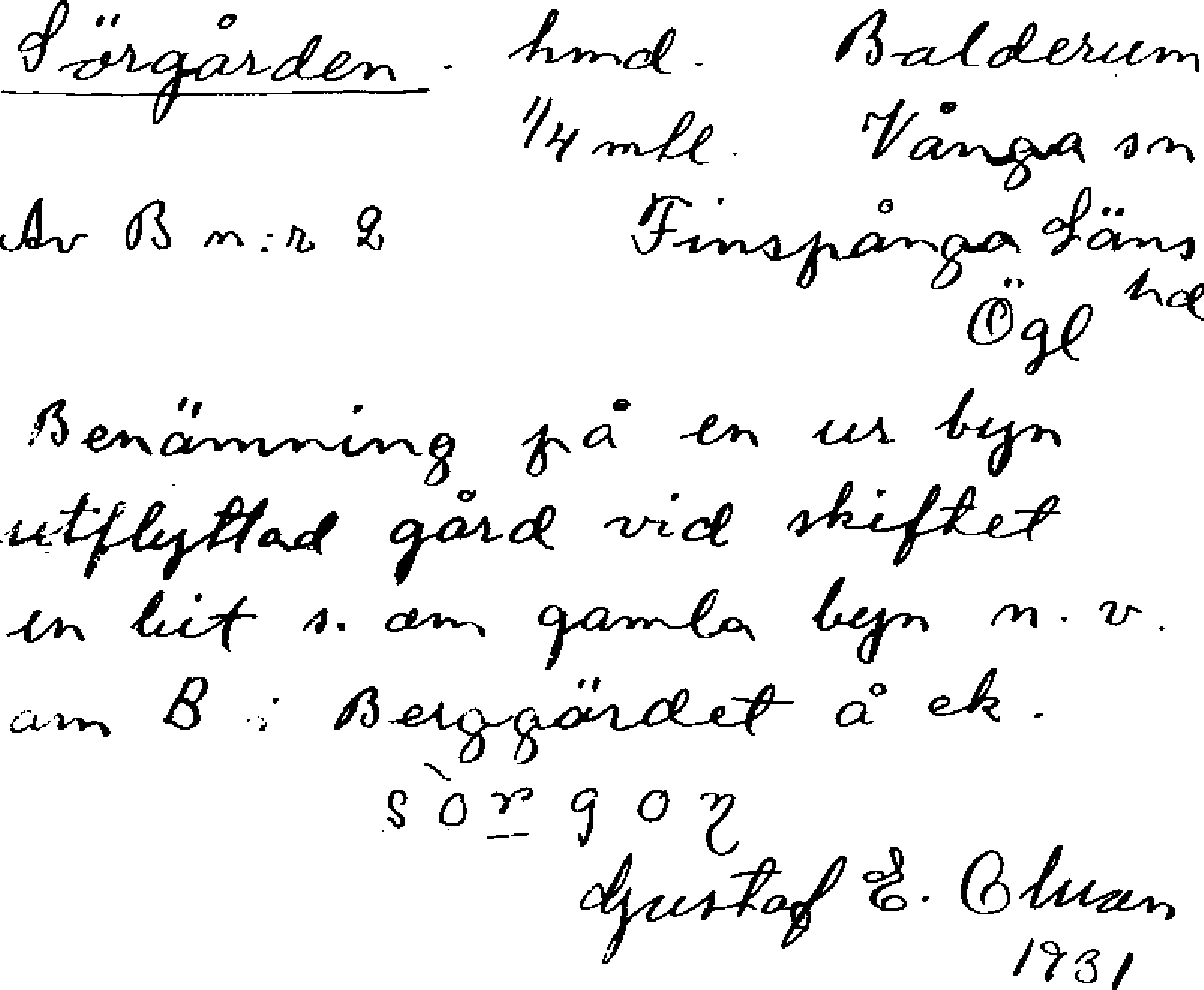 Sörgården. hmd. Balderum
1/4 mtl. Vånga sn
Av B n:r 2 Finspånga Läns
hd
Ögl
Benämning på en ur byn
utflyttad gård vid skiftet
en bit s. om gamla byn n. v.
om B : Berggärdet å ek.
sòrgoɳ
Gustaf E.
1931